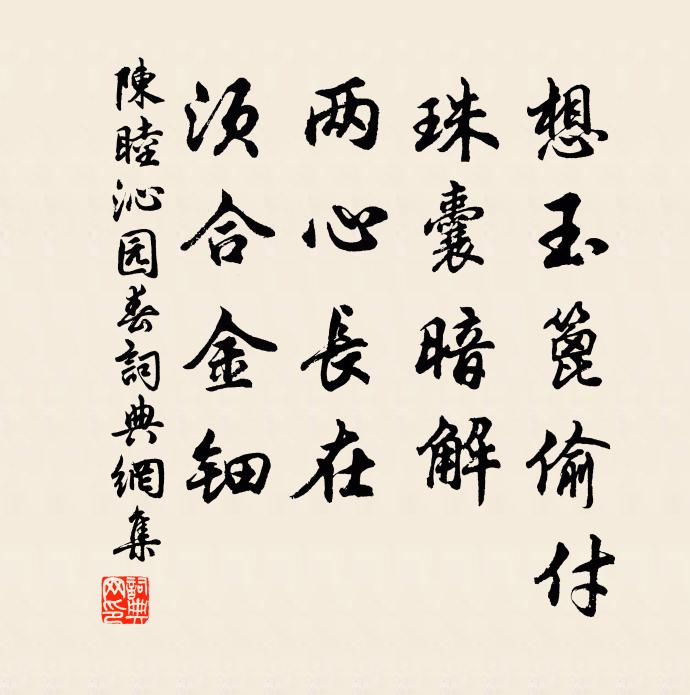 想玉篦偷付
珠囊暗解
两心長在
须合金钿
陳睦沁园春詞典網集
詞典网印